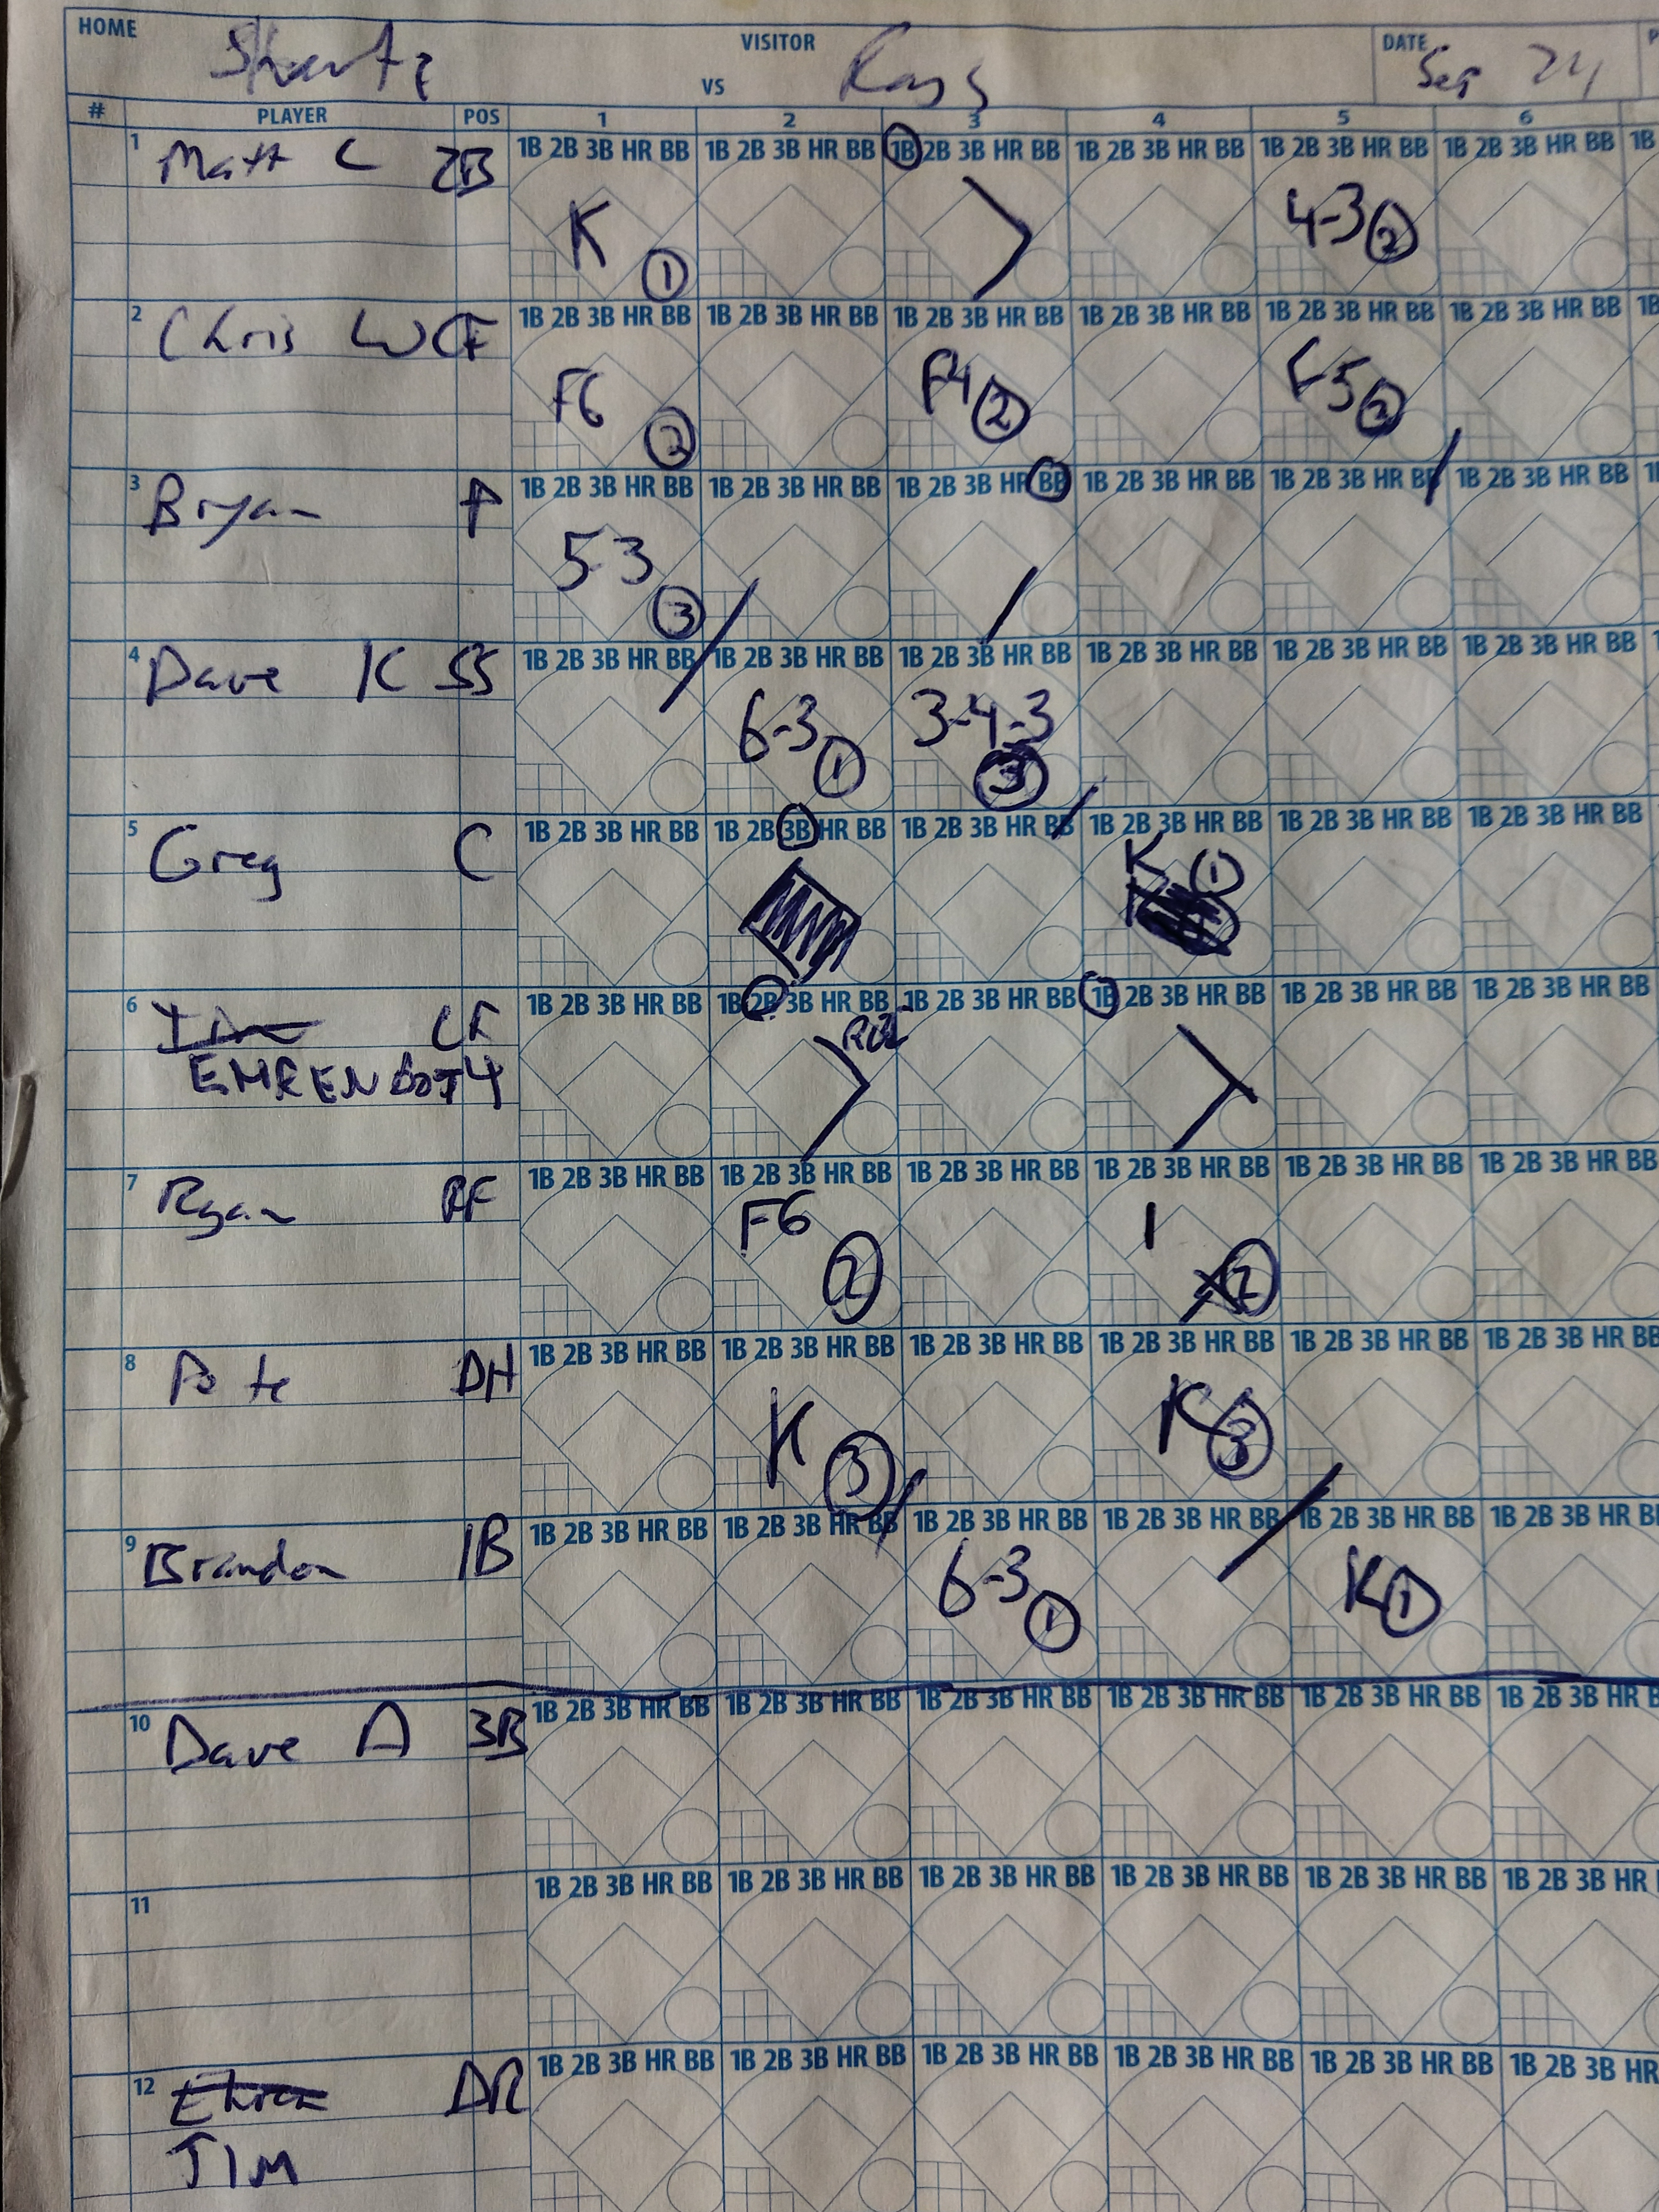 HOME VISITOR DATE
VS Rays Sep 24
# PLAYER POS 1 2 3 4 5 6
1B 2B 3B HR BB 1B 2B 3B HR BB 1B 2B 3B HR BB 1B 2B 3B HR BB 1B 2B 3B HR BB 1B 2B 3B HR BB 1B
1 Matt C 2B K 1 4-3 2
1B 2B 3B HR BB 1B 2B 3B HR BB 1B 2B 3B HR BB 1B 2B 3B HR BB 1B 2B 3B HR BB 1B 2B 3B HR BB 1B
2 Chris W CF F6 2 F4 2 F5
1B 2B 3B HR BB 1B 2B 3B HR BB 1B 2B 3B HR BB 1B 2B 3B HR BB 1B 2B 3B HR BB 1B 2B 3B HR BB
3 Bryan P 5-3 3
1B 2B 3B HR BB 1B 2B 3B HR BB 1B 2B 3B HR BB 1B 2B 3B HR BB 1B 2B 3B HR BB 1B 2B 3B HR BB
4 Dave K SS 6-3 1 3-4-3 3
1B 2B 3B HR BB 1B 2B 3B HR BB 1B 2B 3B HR BB 1B 2B 3B HR BB 1B 2B 3B HR BB 1B 2B 3B HR BB
5 Greg C K 1
1B 2B 3B HR BB 1B 2B 3B HR BB 1B 2B 3B HR BB 1B 2B 3B HR BB 1B 2B 3B HR BB 1B 2B 3B HR BB
6 LF
1B 2B 3B HR BB 1B 2B 3B HR BB 1B 2B 3B HR BB 1B 2B 3B HR BB 1B 2B 3B HR BB 1B 2B 3B HR BB
7 Ryan RF F6 2 1 2
1B 2B 3B HR BB 1B 2B 3B HR BB 1B 2B 3B HR BB 1B 2B 3B HR BB 1B 2B 3B HR BB 1B 2B 3B HR BB
8 Pete DH K 3 K 3
1B 2B 3B HR BB 1B 2B 3B HR BB 1B 2B 3B HR BB 1B 2B 3B HR BB 1B 2B 3B HR BB 1B 2B 3B HR
9 Brandon 1B 6-3 1 K 1
1B 2B 3B HR BB 1B 2B 3B HR BB 1B 2B 3B HR BB 1B 2B 3B HR BB 1B 2B 3B HR BB 1B 2B 3B HR
10 Dave A 3B
1B 2B 3B HR BB 1B 2B 3B HR BB 1B 2B 3B HR BB 1B 2B 3B HR BB 1B 2B 3B HR BB 1B 2B 3B HR
11
1B 2B 3B HR BB 1B 2B 3B HR BB 1B 2B 3B HR BB 1B 2B 3B HR BB 1B 2B 3B HR BB 1B 2B 3B HR
12 Ehren
JIM